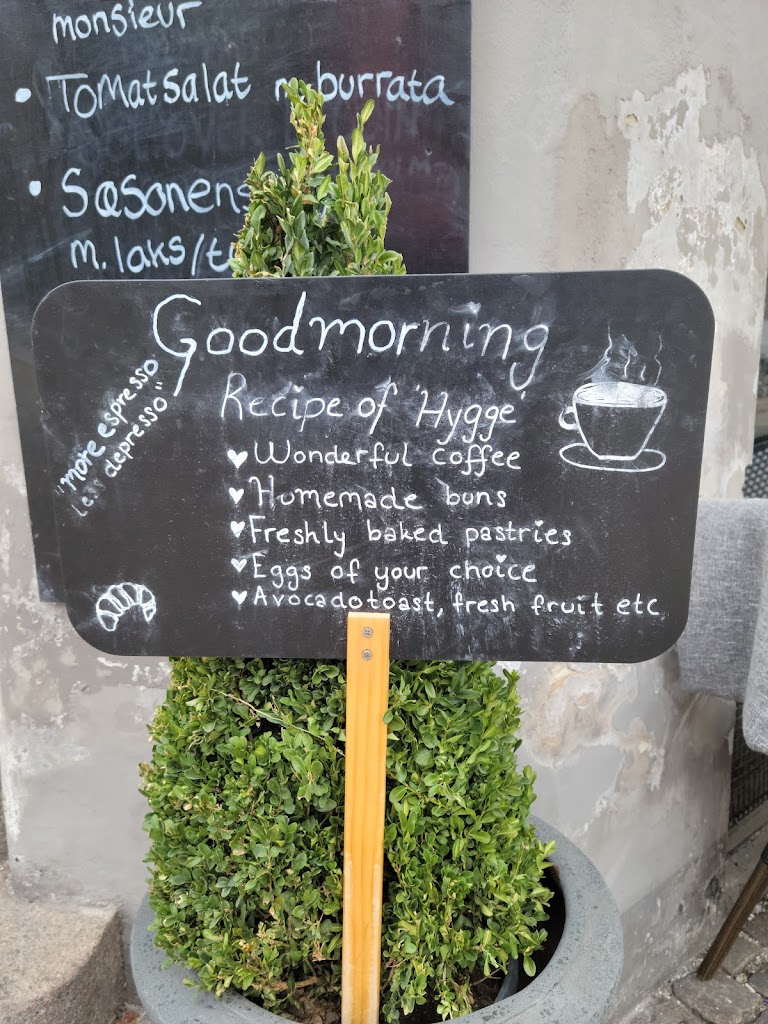 monsieur
• Tomatsalat m. burrata
• Sæsonens
m. laks/
Goodmorning
Recipe of 'Hygge'
"more espresso
Less depresso"
♥ Wonderful coffee
♥ Homemade buns
♥ Freshly baked pastries
♥ Eggs of your choice
♥ Avocadotoast, fresh fruit etc